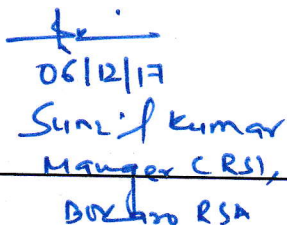 06/12/17
Sunil Kumar
Manager (RS),
Bokaro RSA